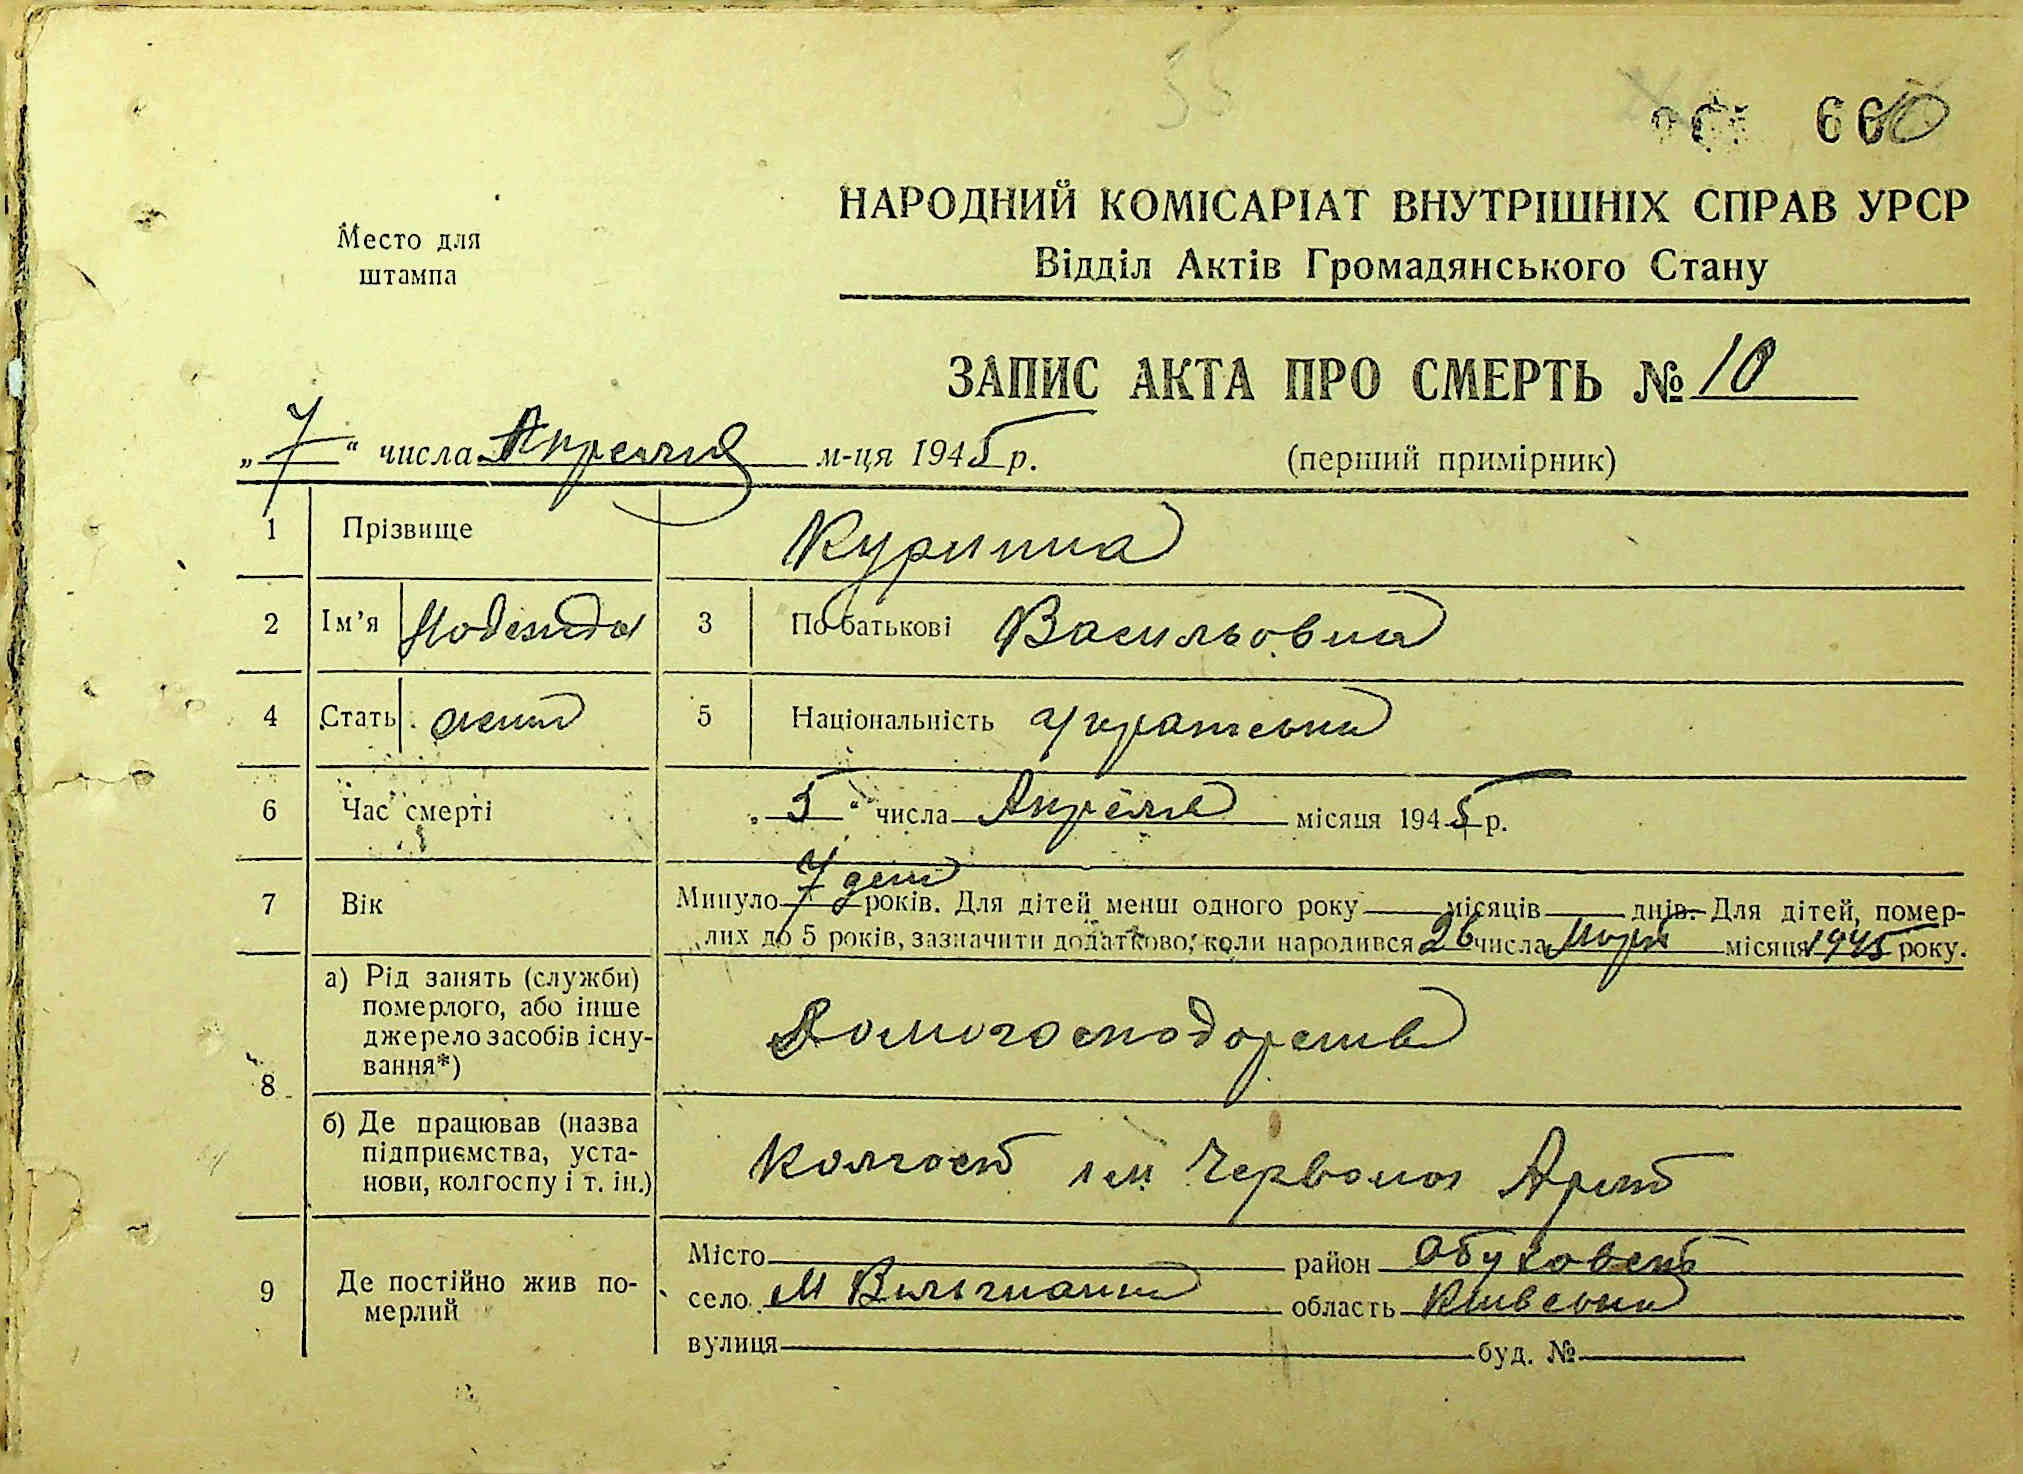 55
660
Место для
штампа
НАРОДНИЙ КОМІСАРІАТ ВНУТРІШНІХ СПРАВ УРСР
Відділ Актів Громадянського Стану
ЗАПИС АКТА ПРО СМЕРТЬ № 10
„7“ числа Апреля м-ця 1945 р. (перший примірник)
1 Прізвище Курипна
2 Ім'я Надежда 3 По батькові Васильовна
4 Стать жин 5 Національність українська
6 Час смерті „5“ числа Апреля місяця 1945 р.
7 Вік Минуло 7 дені років. Для дітей менш одного року — місяців — днів. Для дітей, помер-
лих до 5 років, зазначити додатково, коли народився 26 числа Марта місяця 1945 року.
8 а) Рід занять (служби)
померлого, або інше
джерело засобів існу-
вання*) Домогосподарств
б) Де працював (назва
підприємства, уста-
нови, колгоспу і т. ін.) Колгосп ім Червоной Арм
9 Де постійно жив по-
мерлий
Місто — район Обуховськ
село М Вильшанка область Київська
вулиця — буд. № —